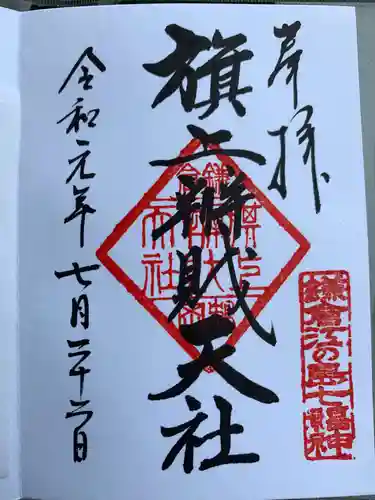 奉拝
旗上辨財天社
令和元年七月二十六日
鎌倉江の島七福神